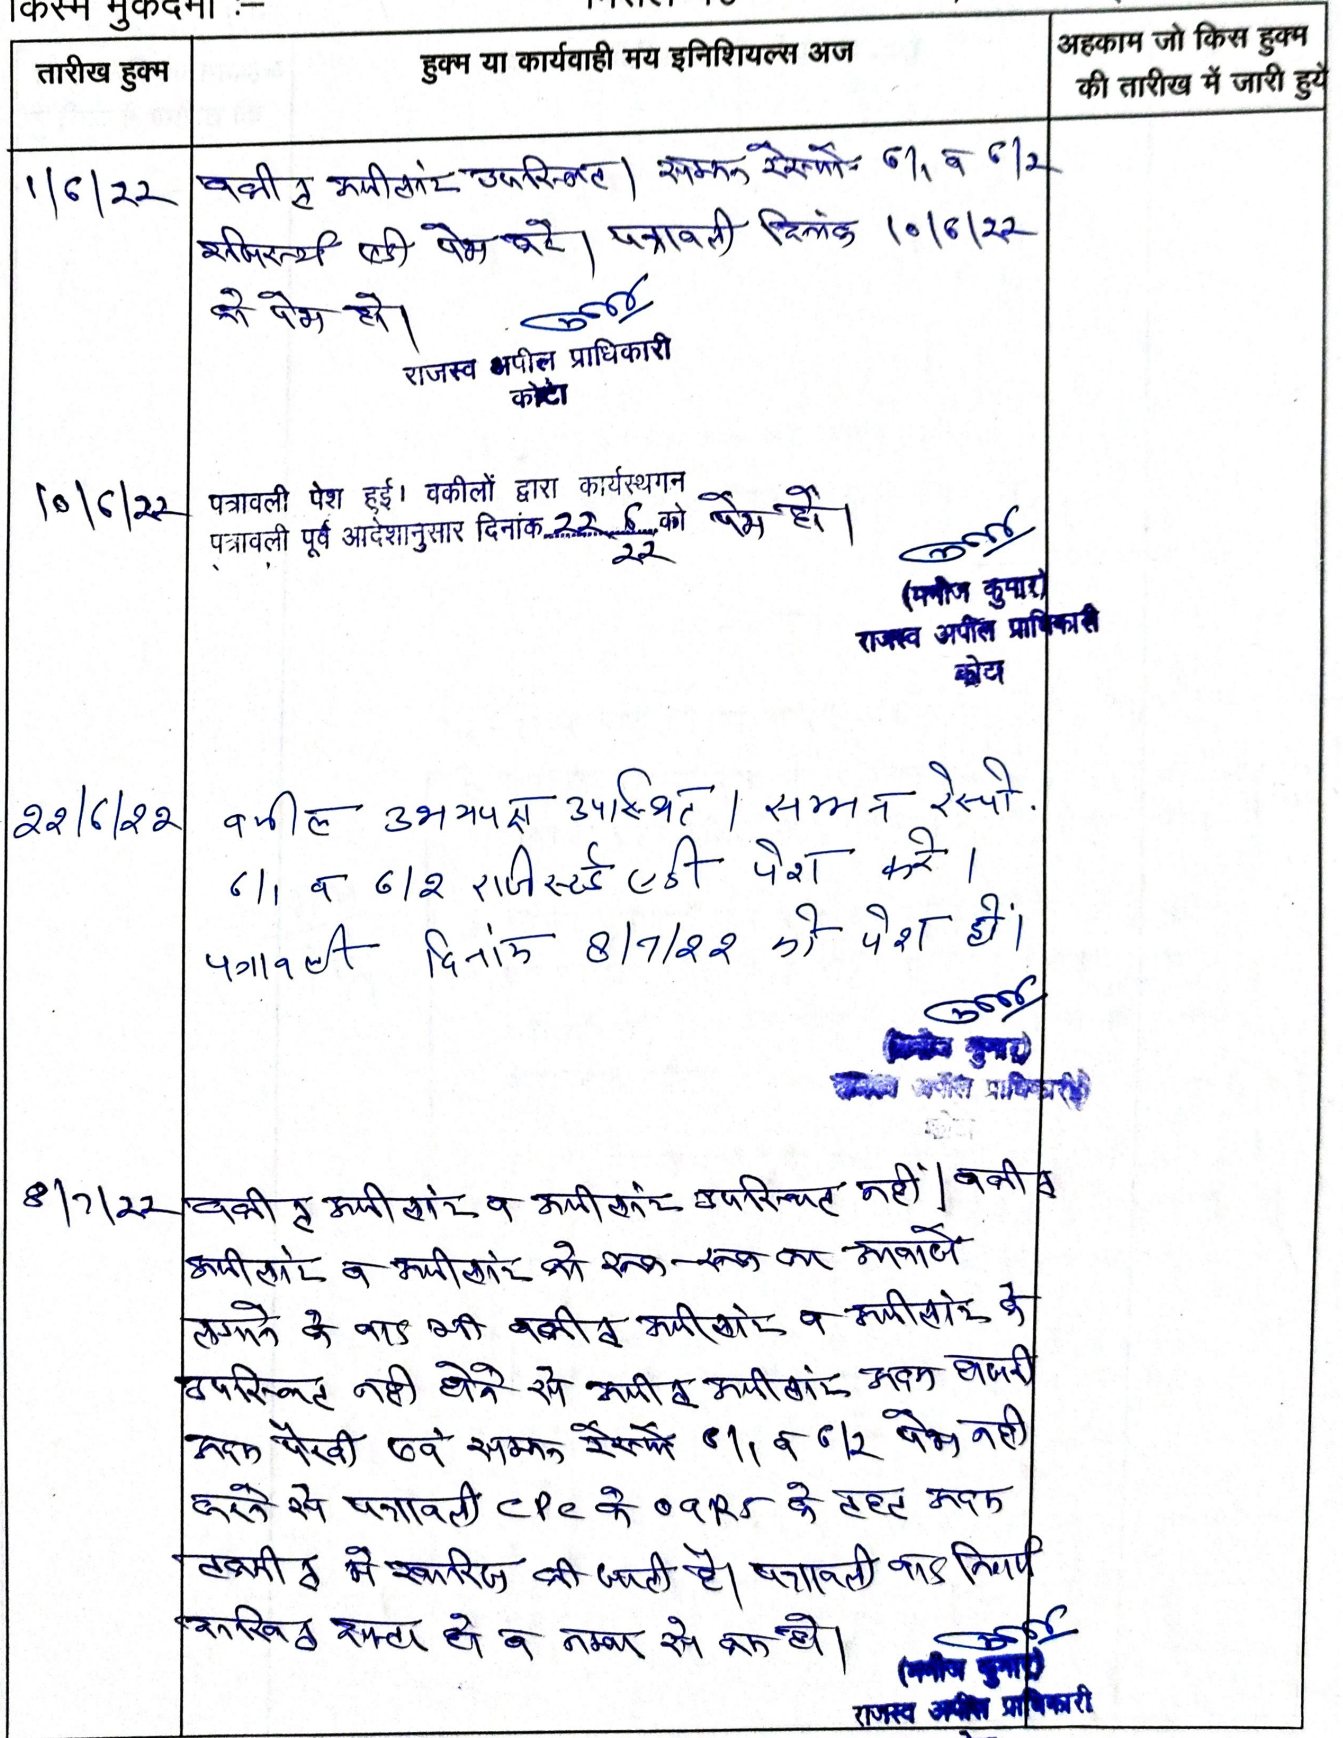 किस्म मुकदमा :–
तारीख हुक्म
हुक्म या कार्यवाही मय इनिशियल्स अज
अहकाम जो किस हुक्म
की तारीख में जारी हुये
1/6/22 वकील अपीलांट उपस्थित। सम्मन रेस्पो 6/1 व 6/2
रजिस्टर्ड एडी पेश करें। पत्रावली दिनांक 10/6/22
को पेश हो।
राजस्व अपील प्राधिकारी
कोटा
10/6/22 पत्रावली पेश हुई। वकीलों द्वारा कार्यस्थगन
पत्रावली पूर्व आदेशानुसार दिनांक 22 6 को पेश हों।
22
(मनोज कुमार)
राजस्व अपील प्राधिकारी
कोटा
22/6/22 वकील उभयपक्ष उपस्थित। सम्मन रेस्पो.
6/1 व 6/2 राजीस्टर्ड एडी पेश करे।
पत्रावली दिनांक 8/7/22 को पेश हों।
(मनोज कुमार)
राजस्व अपील प्राधिकारी
8/7/22 वकील अपीलांट व अपीलांट उपस्थित नहीं। वकील
अपीलांट व अपीलांट को रुक-रुक कर आवाजें
लगाने के बाद भी वकील अपीलांट व अपीलांट के
उपस्थित नही होने से अपील अपीलांट अदम हाजरी
अदम पैरवी एवं सम्मन रेस्पो 6/1 व 6/2 पेश नही
करने से पत्रावली CPC के O9R5 के तहत अदम
तकमील में खारिज की जाती है। पत्रावली बाद निर्णय
दाखिल दफ्तर हो व नम्बर से कम हो।
(मनोज कुमार)
राजस्व अपील प्राधिकारी